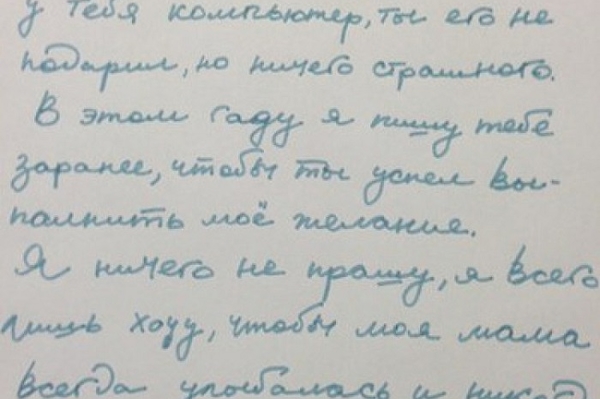 у тебя компьютер, ты его не
подарил, но ничего страшного.
В этом гаду я пишу тебе
заранее, чтобы ты успел вы-
палнить моё желание.
Я ничего не прашу, я всего
лишь хочу, чтобы моя мама
всегда улыбалась и никогд